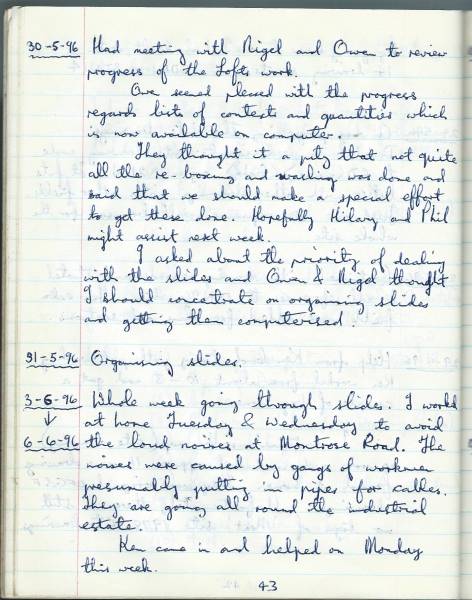 30-5-96 Had meeting with Nigel and Owen to review
progress of the Lofts work.
Owen seemed pleased with the progress
regards lists of contexts and quantities which
is now available on computer.
They thought it a pity that not quite
all the re-boxing and washing was done and
said that we should make a special effort
to get these done. Hopefully Hilary and Phil
might assist next week.
I asked about the priority of dealing
with the slides and Owen & Nigel thought
I should concentrate on organising slides
and getting them computerised.
31-5-96 Organising slides.
3-6-96 Whole week going through slides. I worked
↓ at home Tuesday & Wednesday to avoid
6-6-96 the loud noises at Montrose Road. The
noises were caused by gangs of workmen
presumably putting in pipes for cables.
They are going all round the industrial
estate.
Ken came in and helped on Monday
this week.
43